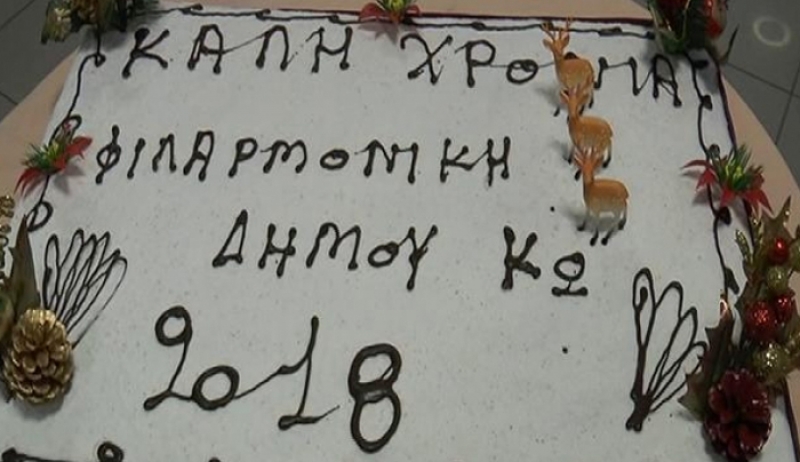 ΚΑΛΗ ΧΡΟΝΙΑ
ΦΙΛΑΡΜΟΝΙΚΗ
ΔΗΜΟΥ ΚΩ
2018